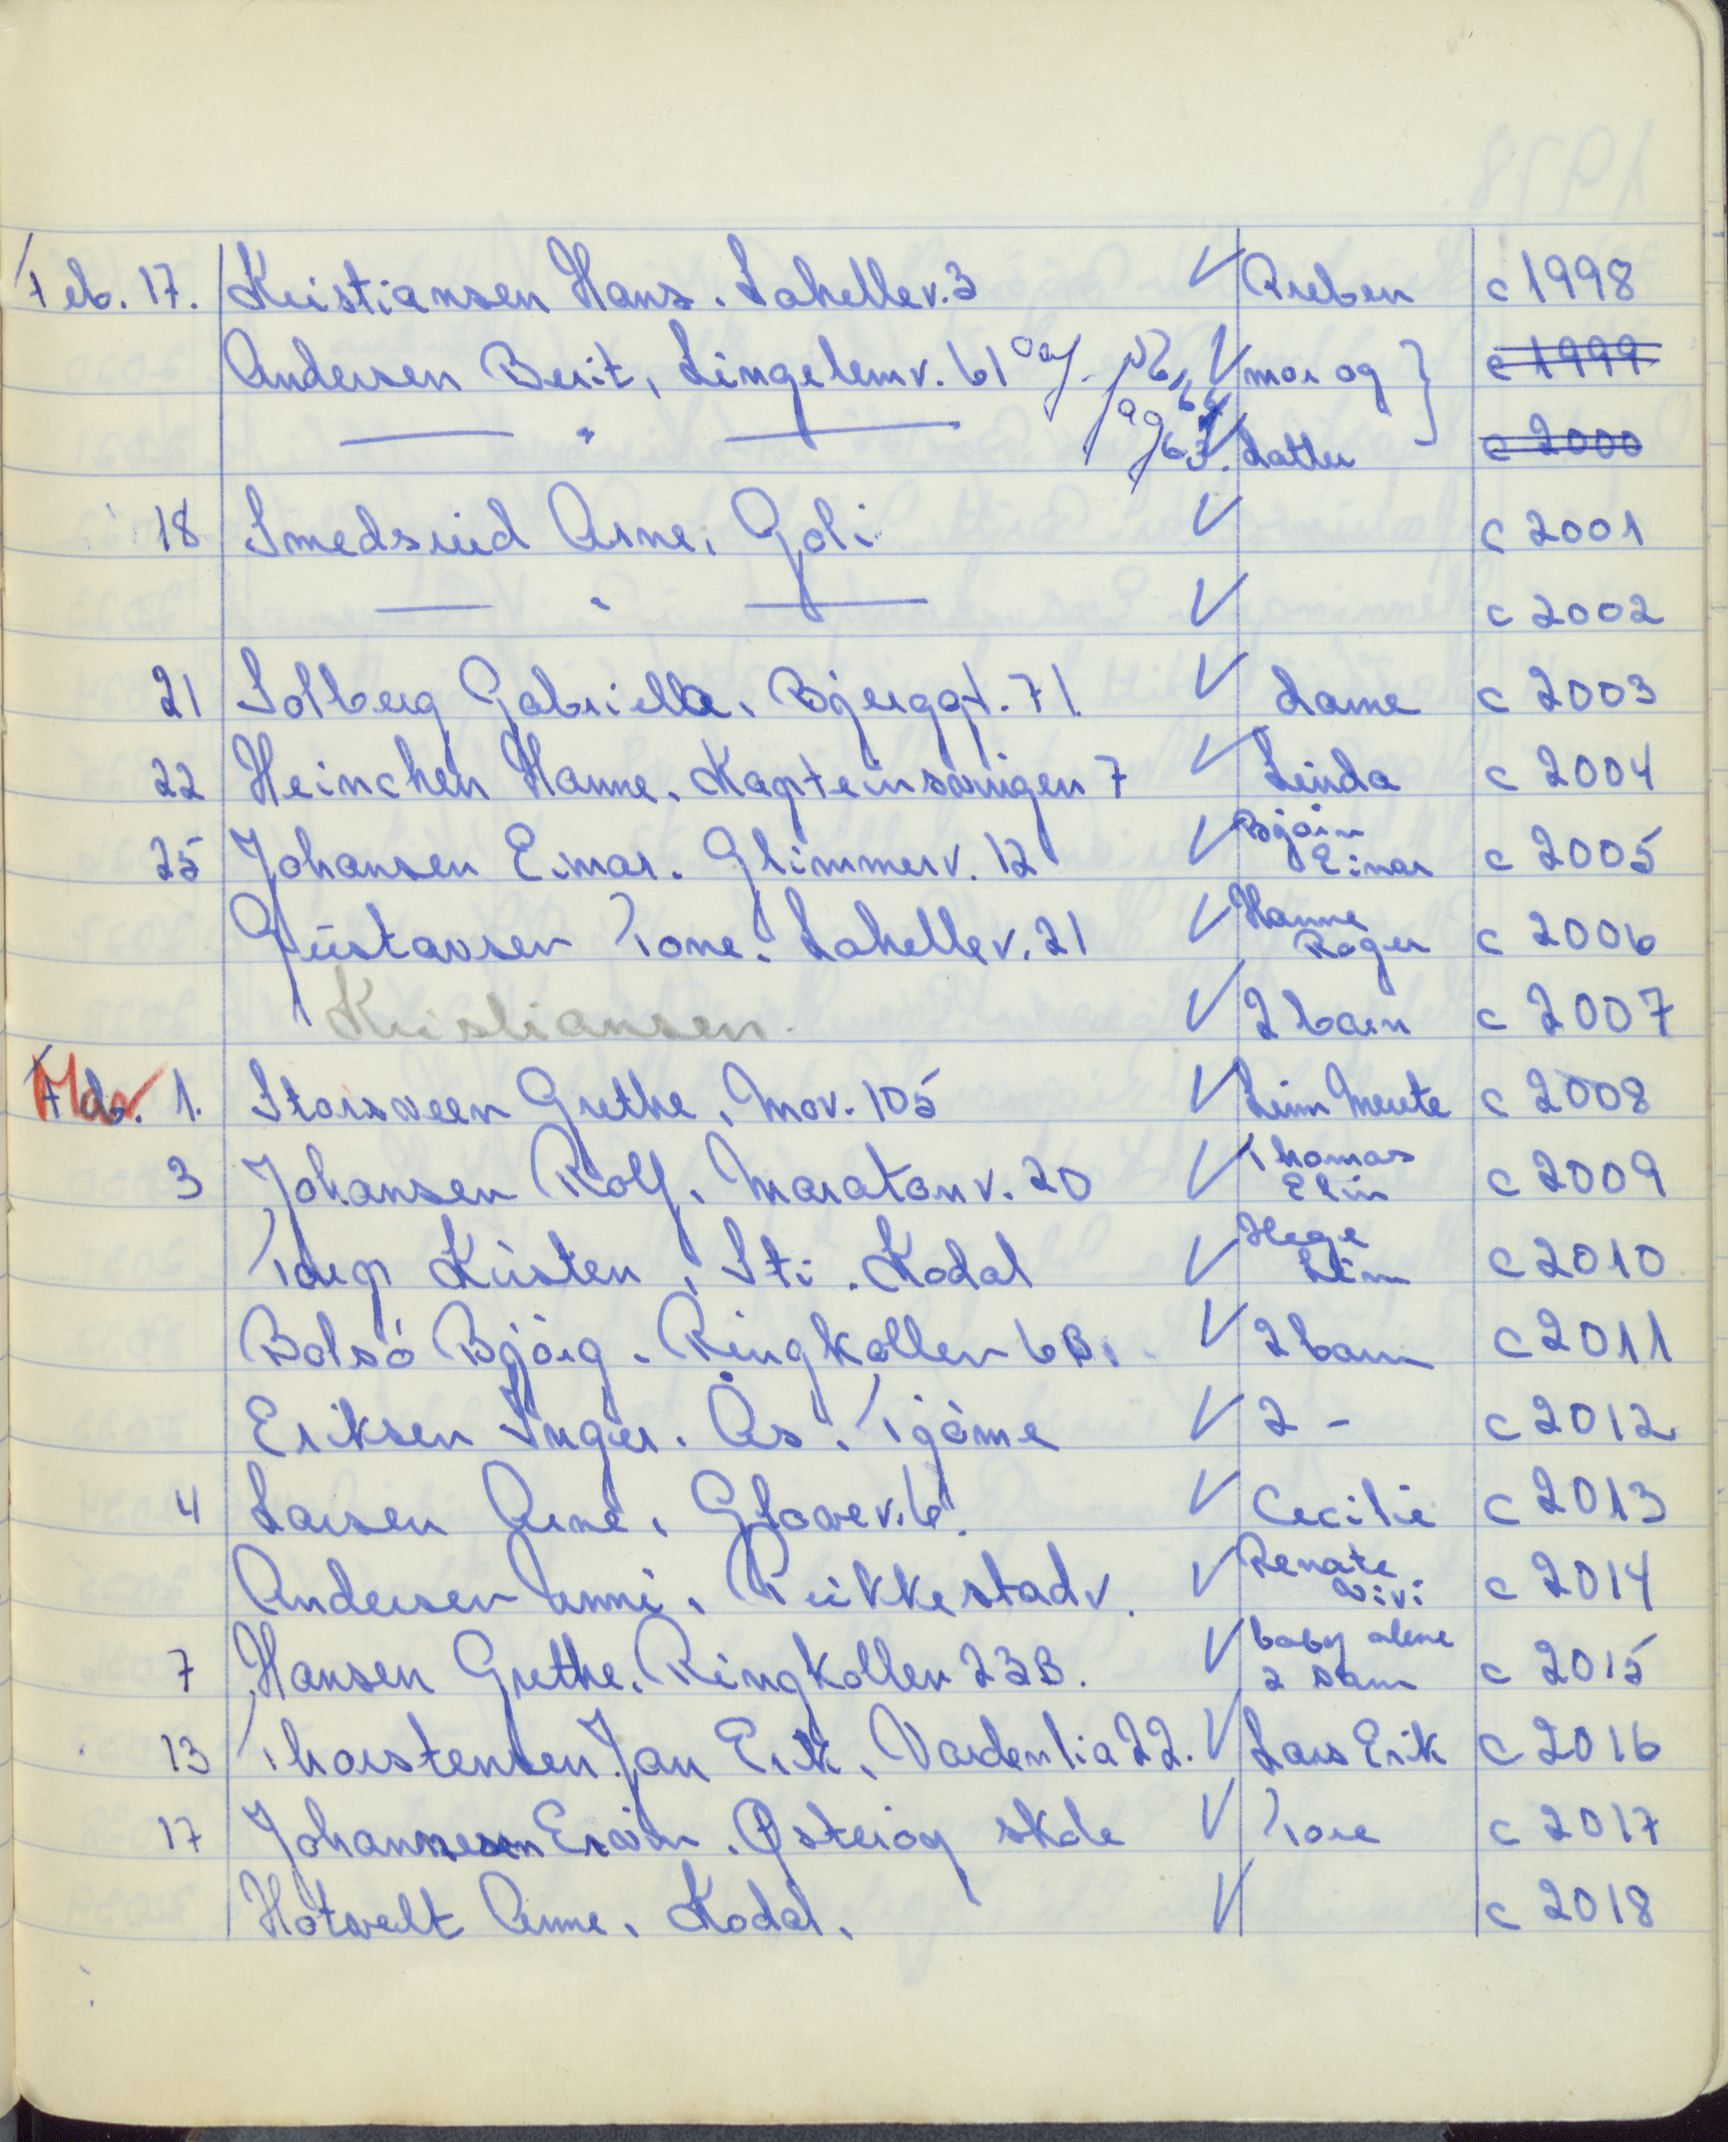 Feb. 17. Kristiansen Hans. Lahellev. 3 ✓ Preben c 1998
Andersen Berit, Lingelemv. 61 ✓ mor og } c 1999
— " — ✓ datter c 2000
18 Smedsrud Arne, Goli ✓ c 2001
— " — ✓ c 2002
21 Solberg Gabriella. Bjerggt. 71. ✓ dame c 2003
22 Heinchen Hanne. Kapteinsvingen 7 ✓ Linda c 2004
25 Johansen Einar. Glimmerv. 12 ✓ Bjørn Einar c 2005
Gustavsen Tone. Lahellev. 21 ✓ Hanne Roger c 2006
Kristiansen. ✓ 2 barn c 2007
Mar. 1. Storsveen Grethe, Mov. 105 ✓ Linn Merete c 2008
3 Johansen Rolf, Maratonv. 20 ✓ Thomas Elin c 2009
Torp Kirsten, Sti. Kodal ✓ Hege c 2010
Bolsø Bjørg. Ringkollen 6B. ✓ 2 barn c 2011
Eriksen Inger. Ås. Tjøme ✓ 2 - c 2012
4 Larsen Arne, Gloverv. 6. ✓ Cecilie c 2013
Andersen Anni, Prikkestadv. ✓ Renate Vivi c 2014
7 Hansen Grethe. Ringkollen 23B. ✓ baby alene 2 sam c 2015
13 Thorstensen Jan Erik, Vardenlia 22. ✓ Lars Erik c 2016
17 Johannessen Ervin. Østerøy skole ✓ Tore c 2017
Hotvelt Anne, Kodal. ✓ c 2018